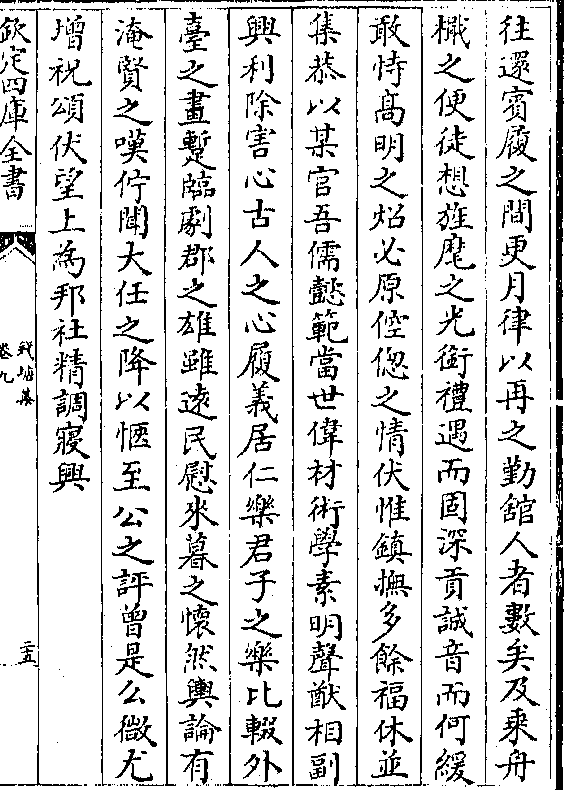 往還賔履之間更月律以再之勤舘人者數矣及乗舟
檝之便徒想旌麾之光銜禮遇而固深貢誠音而何緩
敢恃髙明之炤必原倥傯之情伏惟鎮撫多餘福休並
集恭以某官吾儒懿範當世偉材術學素明聲猷相副
興利除害心古人之心履義居仁樂君子之樂比輟外
臺之畫蹔臨劇郡之雄雖逺民慰來暮之懷然輿論有
淹賢之嘆佇聞大任之降以愜至公之評曾是么微尤
增祝頌伏望上為邦社精調寢興
欽定四庫全書
錢塘集
卷九
二十五